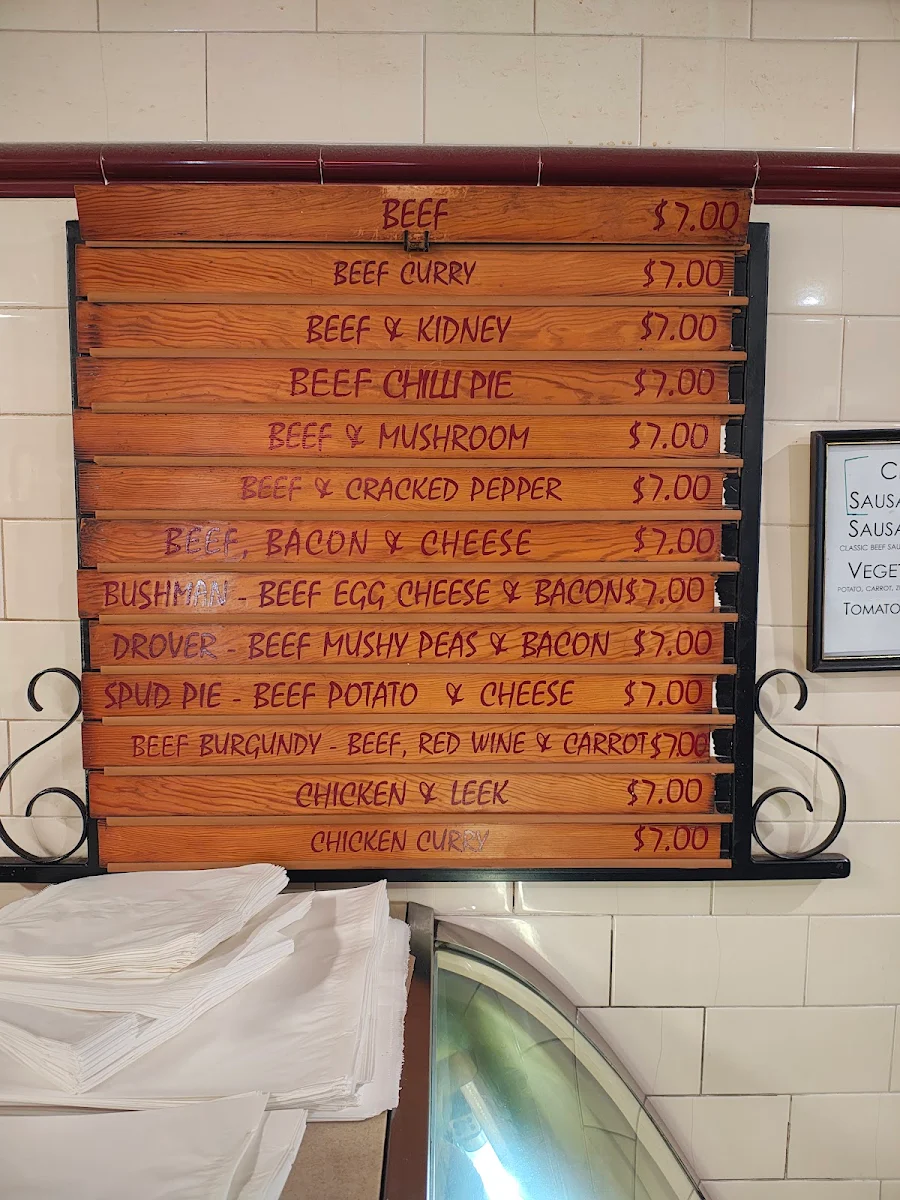 BEEF $7.00
BEEF CURRY $7.00
BEEF & KIDNEY $7.00
BEEF CHILLI PIE $7.00
BEEF & MUSHROOM $7.00
BEEF & CRACKED PEPPER $7.00
BEEF, BACON & CHEESE $7.00
BUSHMAN - BEEF EGG CHEESE & BACON $7.00
DROVER - BEEF MUSHY PEAS & BACON $7.00
SPUD PIE - BEEF POTATO & CHEESE $7.00
BEEF BURGUNDY - BEEF, RED WINE & CARROT $7.00
CHICKEN & LEEK $7.00
CHICKEN CURRY $7.00
CLASSIC BEEF
POTATO, CARROT,